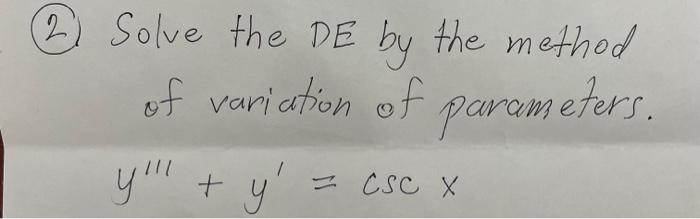 ② Solve the DE by the method
of variation of parameters.
y''' + y' = csc x